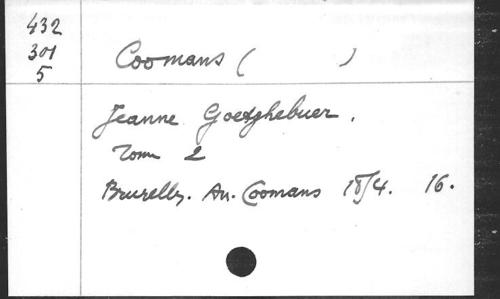 432
301
5
Coomans ( )
Jeanne Goetghebuer.
Tom 2
Bruxelles. An. Coomans 18/4. 16.